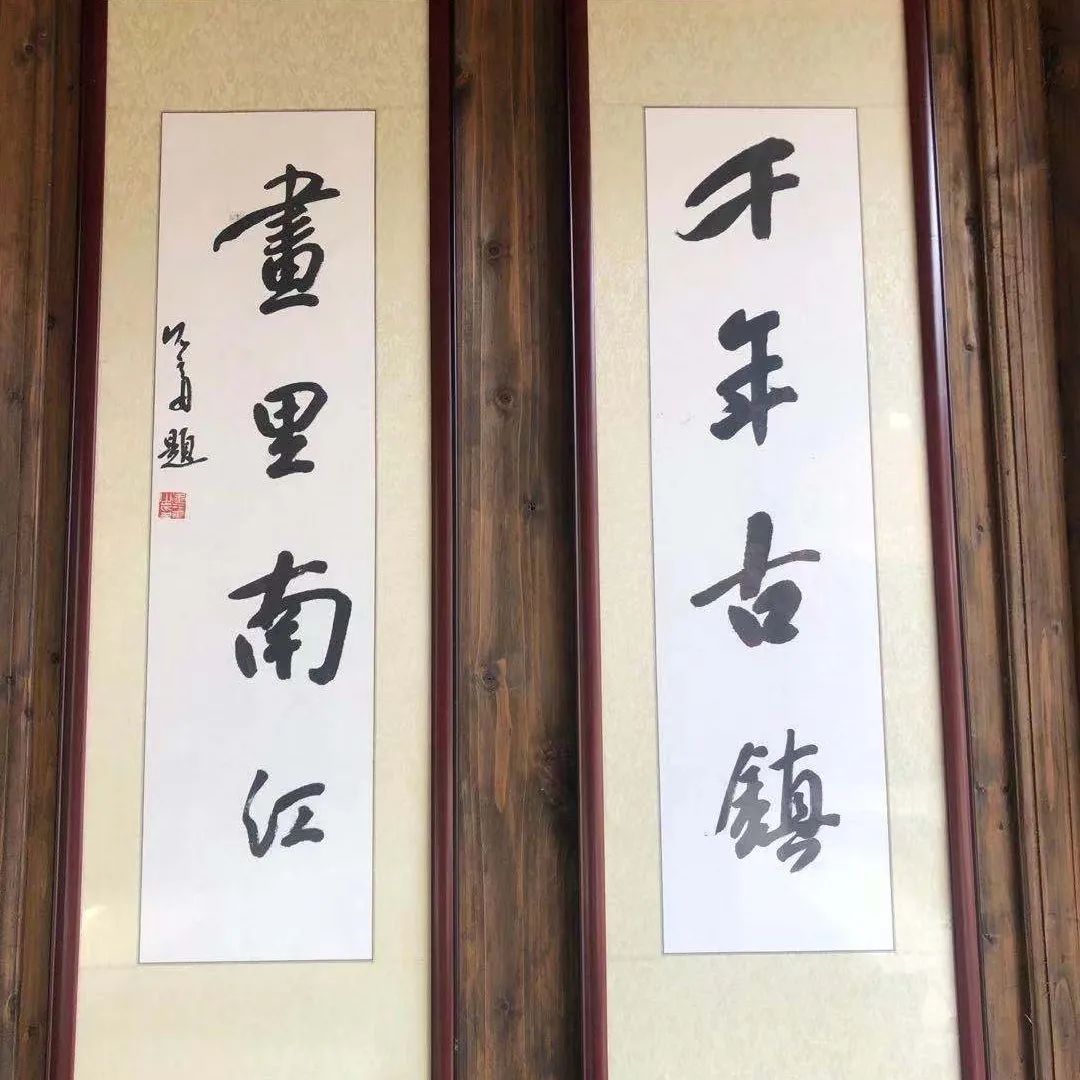 千年古鎮
畫里南江
題